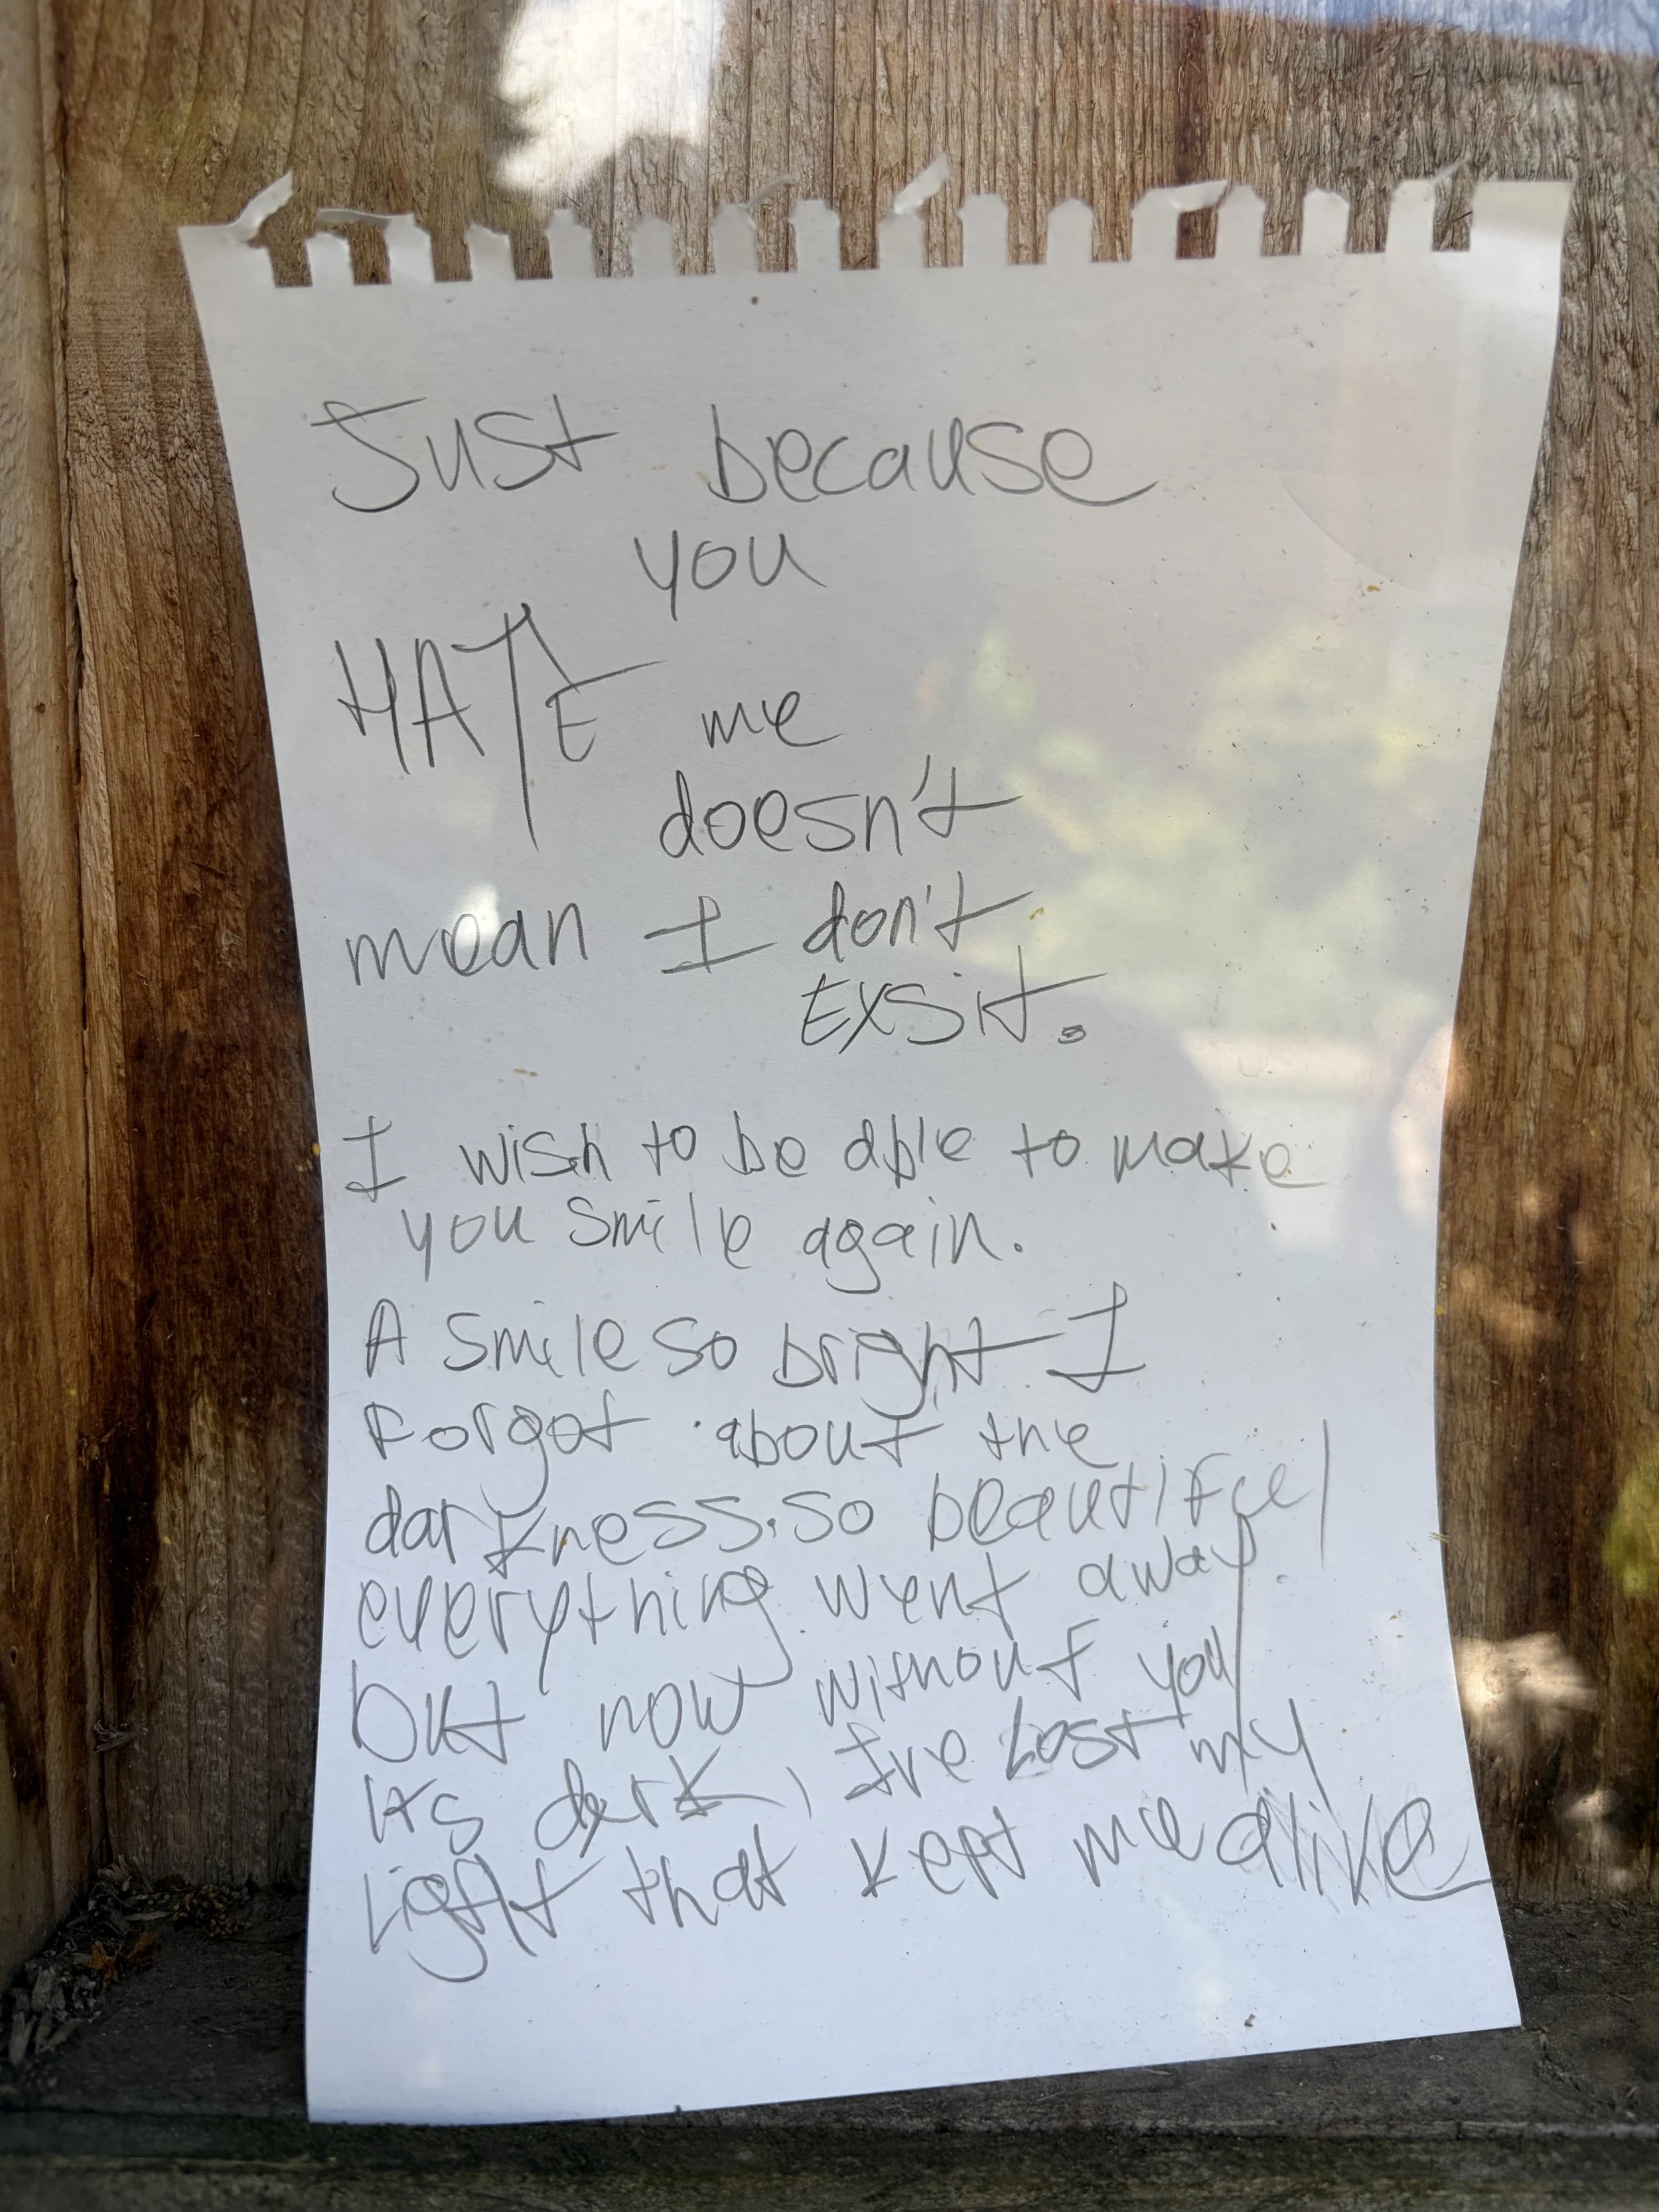 Just because
you
HATE me
doesn't
mean I don't
EXSIT.
I wish to be able to make
you smile again.
A smile so bright I
Forgot about the
darkness. so beautiful
everything went away.
but now without you
its dark, I've Lost my
Light that kept me alive